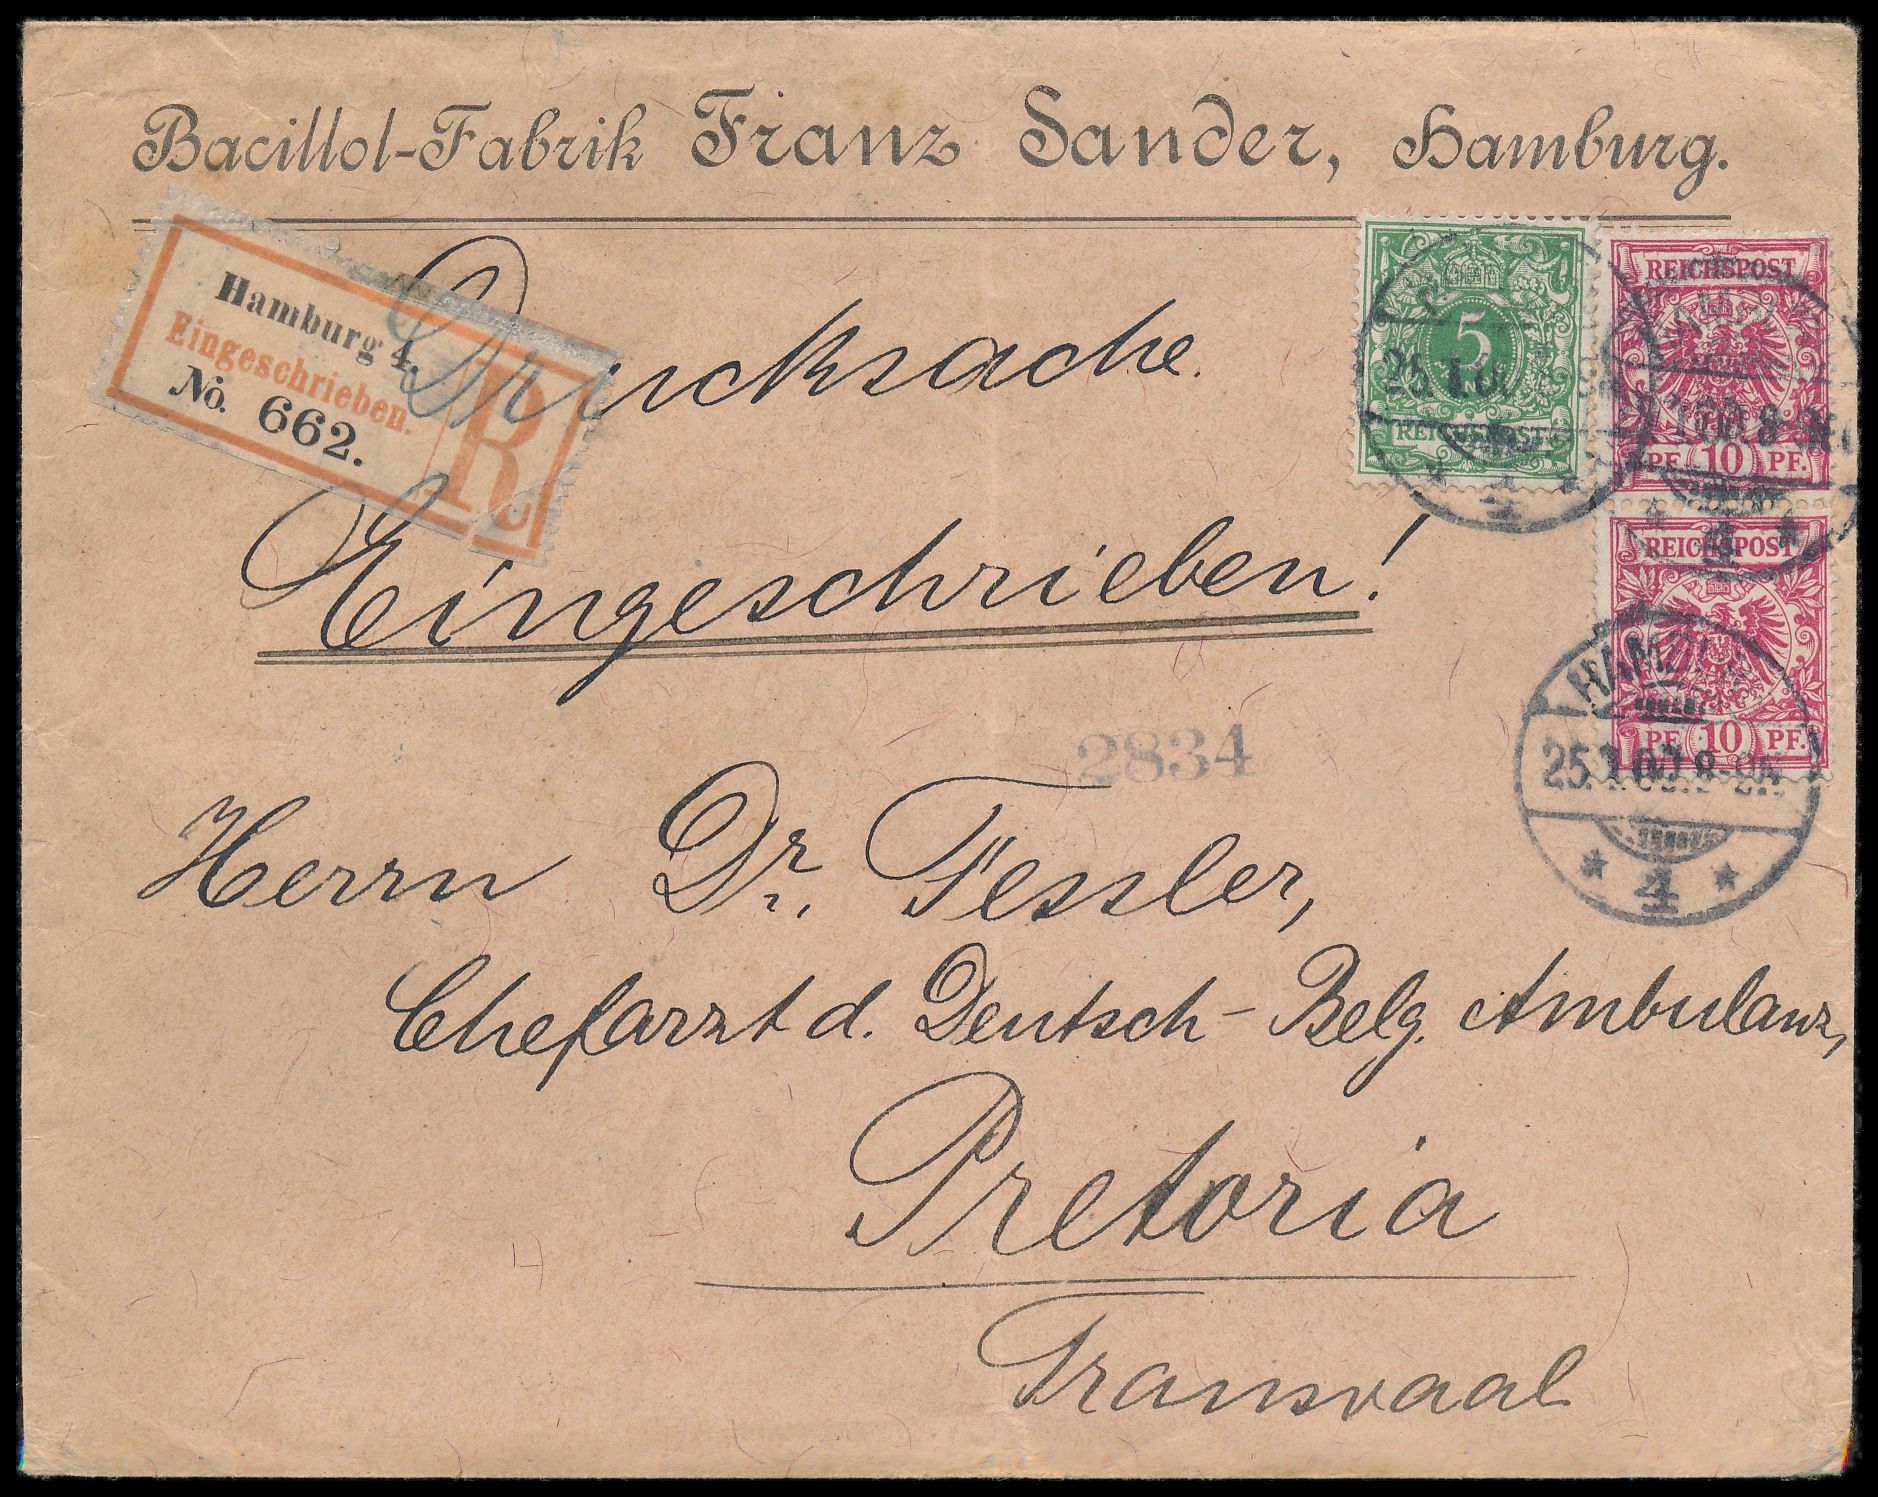 Bacillol-Fabrik Franz Sander, Hamburg.
Hamburg 4.
Eingeschrieben.
No. 662.
R
Drucksache.
Eingeschrieben!
5
REICHSPOST
REICHSPOST
PF. 10 PF.
REICHSPOST
PF. 10 PF.
4
4
HAM
25.1.00. 8-9N
4
2834
Herrn Dr. Tessler,
Chefarzt d. Deutsch-Belg. Ambulanz,
Pretoria
Transvaal